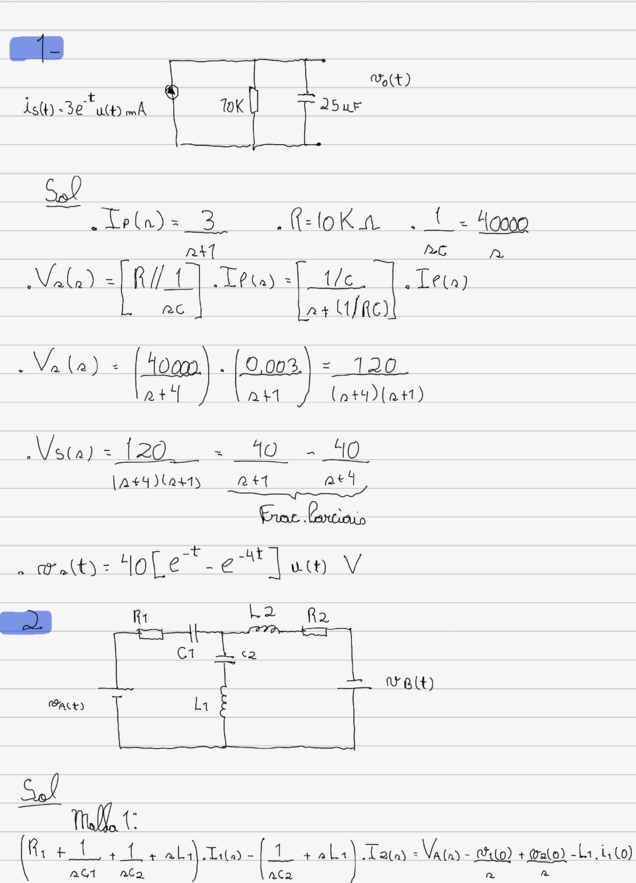 1-
v₀(t)
is(t) = 3e^-t u(t) mA
10K
25uF
Sol
. Ip(s) = 3/(s+1) . R = 10KΩ . 1/sC = 40000/s
. Vs(s) = [R // 1/sC] . Ip(s) = [(1/C)/(s+(1/RC))] . Ip(s)
. Vs(s) = (40000/(s+4)) . (0,003/(s+1)) = 120/((s+4)(s+1))
. Vs(s) = 120/((s+4)(s+1)) = 40/(s+1) - 40/(s+4)
Frac. Parciais
. vs(t) = 40[e^-t - e^-4t] u(t) V
2
R1
L2
R2
C1
C2
vA(t)
L1
vB(t)
Sol
Malha 1:
(R1 + 1/sC1 + 1/sC2 + sL1) . I1(s) - (1/sC2 + sL1) . I2(s) = VA(s) - v1(0)/s + v2(0)/s - L1 . i1(0)